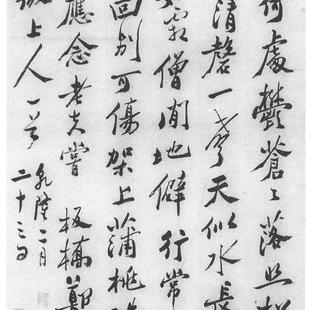 何處鬱蒼蒼落照松
清磬一聲天似水長
霜僧閒地僻行常
回別可傷架上蒲桃
應念老夫嘗 板橋鄭
上人一首
乾隆二月
二十三日